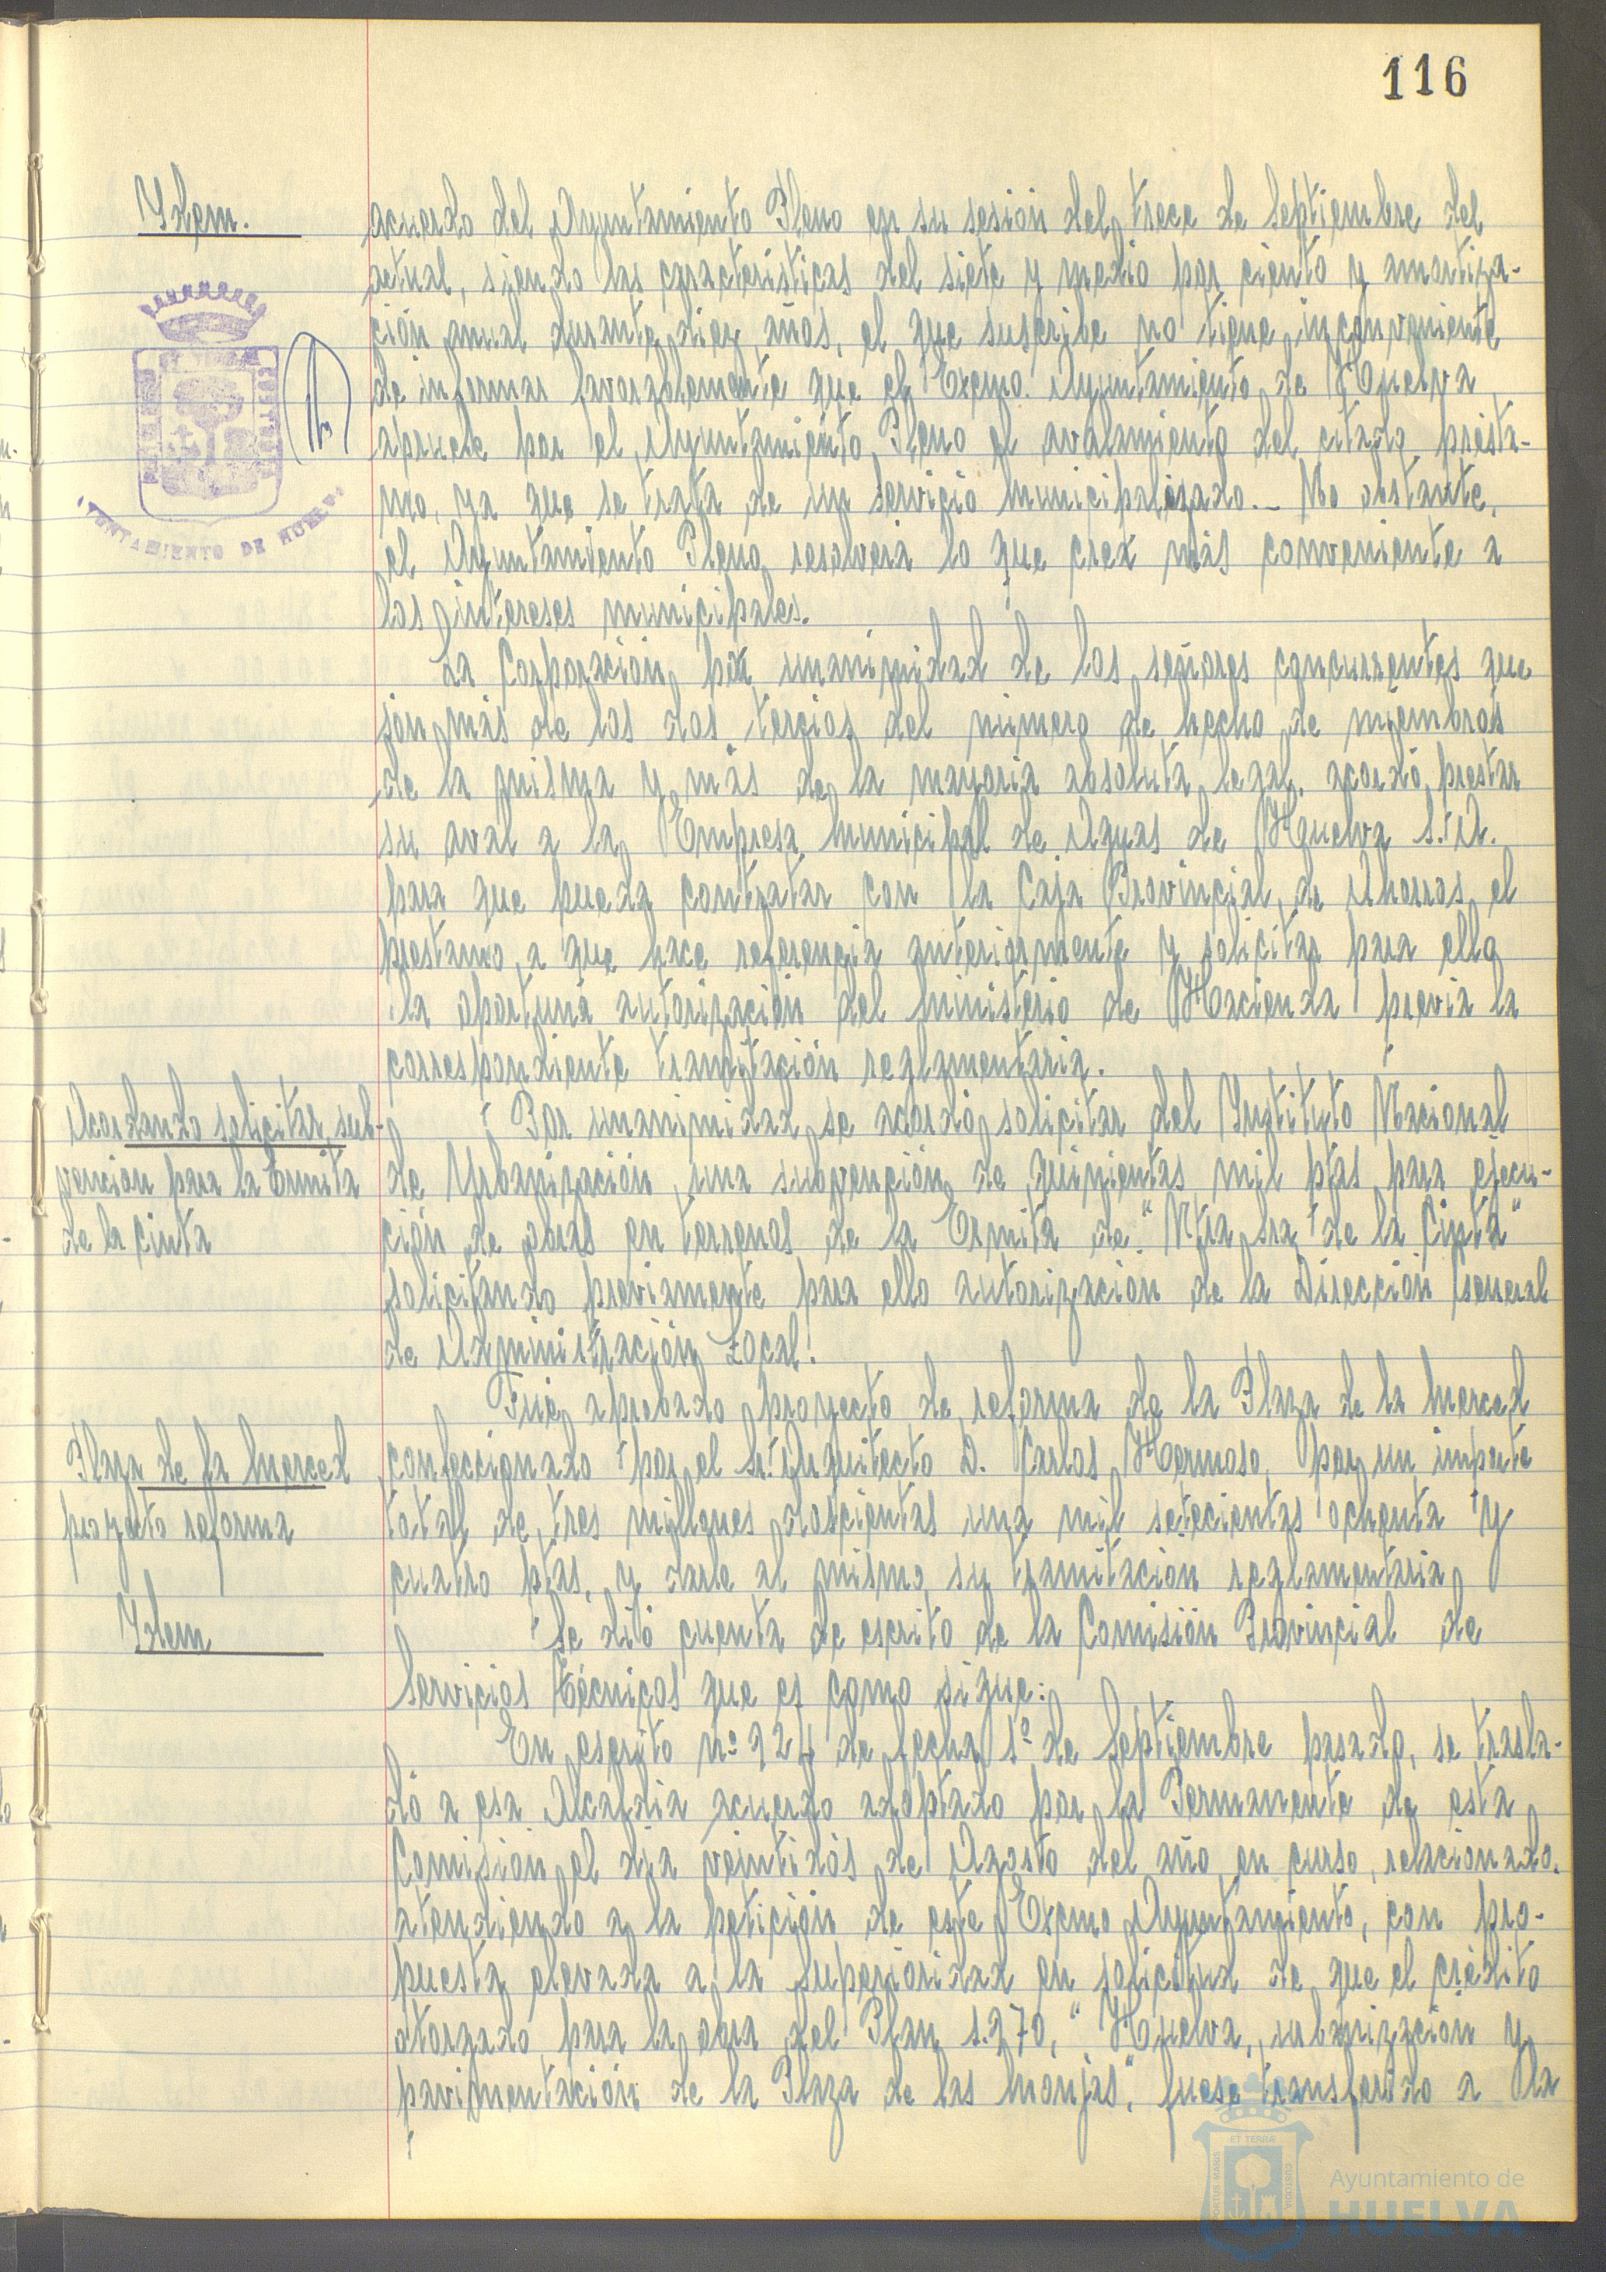 116
Idem.
acuerdo del Ayuntamiento Pleno en su sesión del trece de Septiembre del
actual, siendo las características del siete y medio por ciento y amortiza-
ción anual durante diez años, el que suscribe no tiene inconveniente
de informar favorablemente que el Excmo. Ayuntamiento de Huelva
apruebe por el Ayuntamiento Pleno el avalamiento del citado présta-
mo, ya que se trata de un servicio municipalizado.- No obstante,
el Ayuntamiento Pleno resolverá lo que crea más conveniente a
los intereses municipales.
La Corporación por unanimidad de los señores concurrentes que
son más de los dos tercios del número de hecho de miembros
de la misma y más de la mayoría absoluta legal, acordó prestar
su aval a la Empresa Municipal de Aguas de Huelva S.A.
para que pueda contratar con la Caja Provincial de Ahorros el
prestamo a que hace referencia anteriormente y solicitar para ello
la oportuna autorización del Ministerio de Hacienda previa la
correspondiente tramitación reglamentaria.
Acordando solicitar sub-
vención para la Ermita
de la Cinta
Por unanimidad se acordó solicitar del Instituto Nacional
de Urbanización una subvención de quinientas mil ptas para ejecu-
ción de obras en terrenos de la Ermita de "Ntra Sra de la Cinta"
solicitando previamente para ello autorización de la Dirección General
de Administración Local.
Plaza de la Merced
proyecto reforma
Fué aprobado proyecto de reforma de la Plaza de la Merced
confeccionado por el Sr. Arquitecto D. Carlos Hermoso, por un importe
total de tres millones doscientas una mil setecientas ochenta y
cuatro ptas, y darle al mismo su tramitación reglamentaria
Idem
Se dió cuenta de escrito de la Comisión Provincial de
Servicios Técnicos que es como sigue:
En escrito nº 924 de fecha 1º de Septiembre pasado, se trasla-
dó a esa Alcaldía acuerdo adoptado por la Permanente de esta
Comisión el día veintidós de Agosto del año en curso, relacionado,
atendiendo a la petición de este Excmo Ayuntamiento, con pro-
puesta elevada a la Superioridad en solicitud de que el crédito
otorgado para la obra del Plan 1.970, "Huelva, urbanización y
pavimentación de la Plaza de las Monjas", fuese transferido a la
AYUNTAMIENTO DE HUELVA
Ayuntamiento de
HUELVA